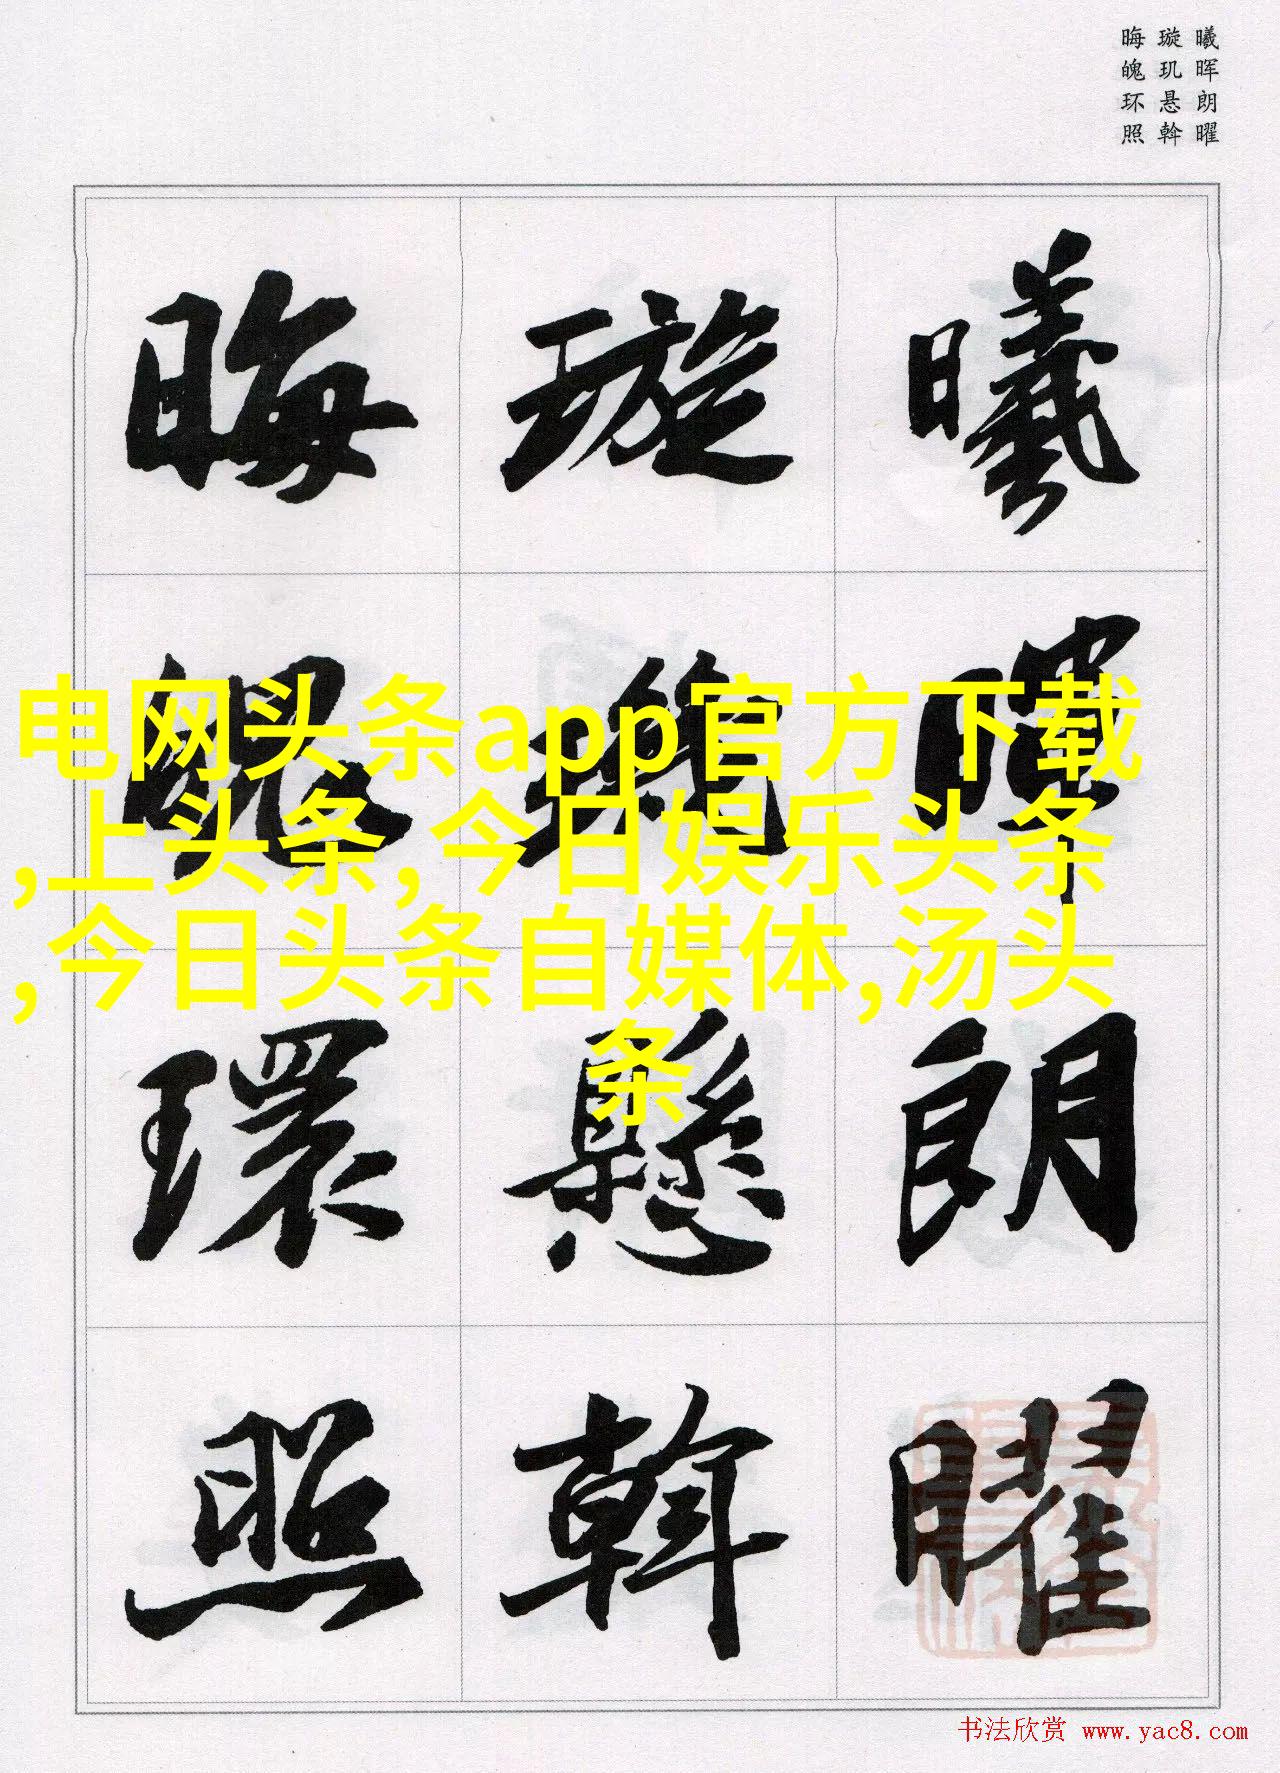 曦晖朗曜
璇玑悬斡
晦魄环照
曦暉朗曜
璇璣懸斡
晦魄環照
电网头条app官方下载
,上头条,今日娱乐头条
,今日头条自媒体,汤头
条
书法欣赏 www.yac8.com